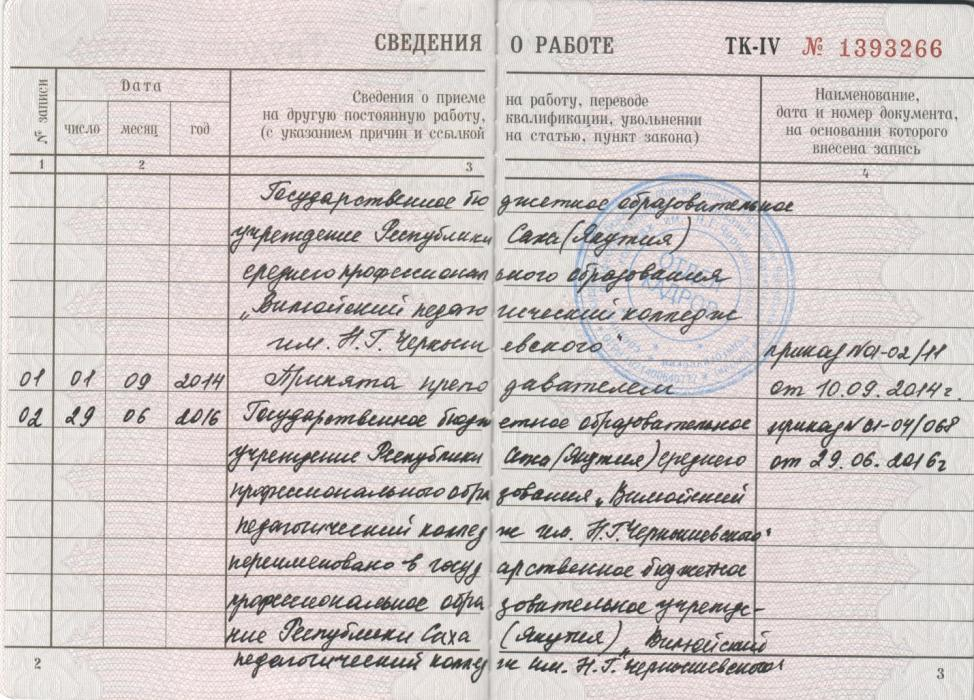 СВЕДЕНИЯ О РАБОТЕ ТК-IV № 1393266
№ записи
Дата
число месяц год
Сведения о приеме на работу, переводе
на другую постоянную работу, квалификации, увольнении
(с указанием причин и ссылкой на статью, пункт закона)
Наименование,
дата и номер документа,
на основании которого
внесена запись
1 2 3 4
Государственное бюджетное образовательное
учреждение Республики Саха (Якутия)
среднего профессионального образования
„Вилюйский педагогический колледж
им. Н.Г. Чернышевского“
приказ №01-02/11
01 01 09 2014 Принята преподавателем от 10.09.2014г.
02 29 06 2016 Государственное бюджетное образовательное приказ №01-04/068
учреждение Республики Саха (Якутия) среднего от 29.06.2016г
профессионального образования „Вилюйский
педагогический колледж им. Н.Г. Чернышевского“
переименовано в государственное бюджетное
профессиональное образовательное учрежде-
ние Республики Саха (Якутия) „Вилюйский
педагогический колледж им. Н.Г. Чернышевского“
ОТДЕЛ
КАДРОВ
2 3